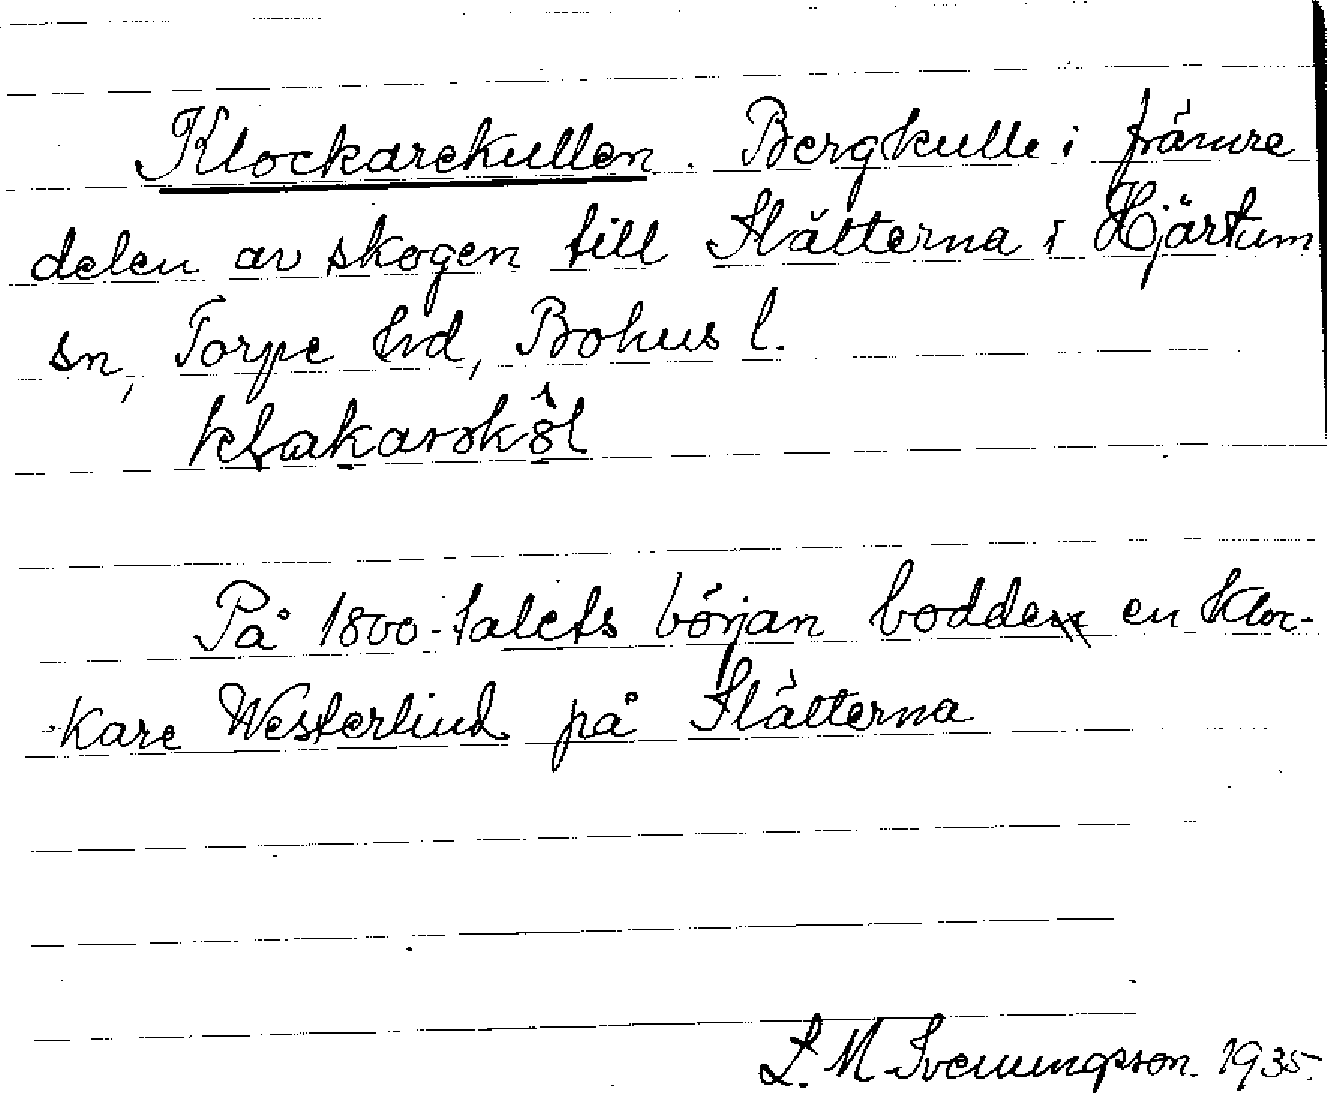 Klockarekullen. Bergkulle i främre
delen av skogen till Slätterna i Hjärtum
sn, Torpe hd, Bohus l.
På 1800-talets början bodde en kloc-
kare Westerlind på Slätterna
L. M. Svenungsson 1935.